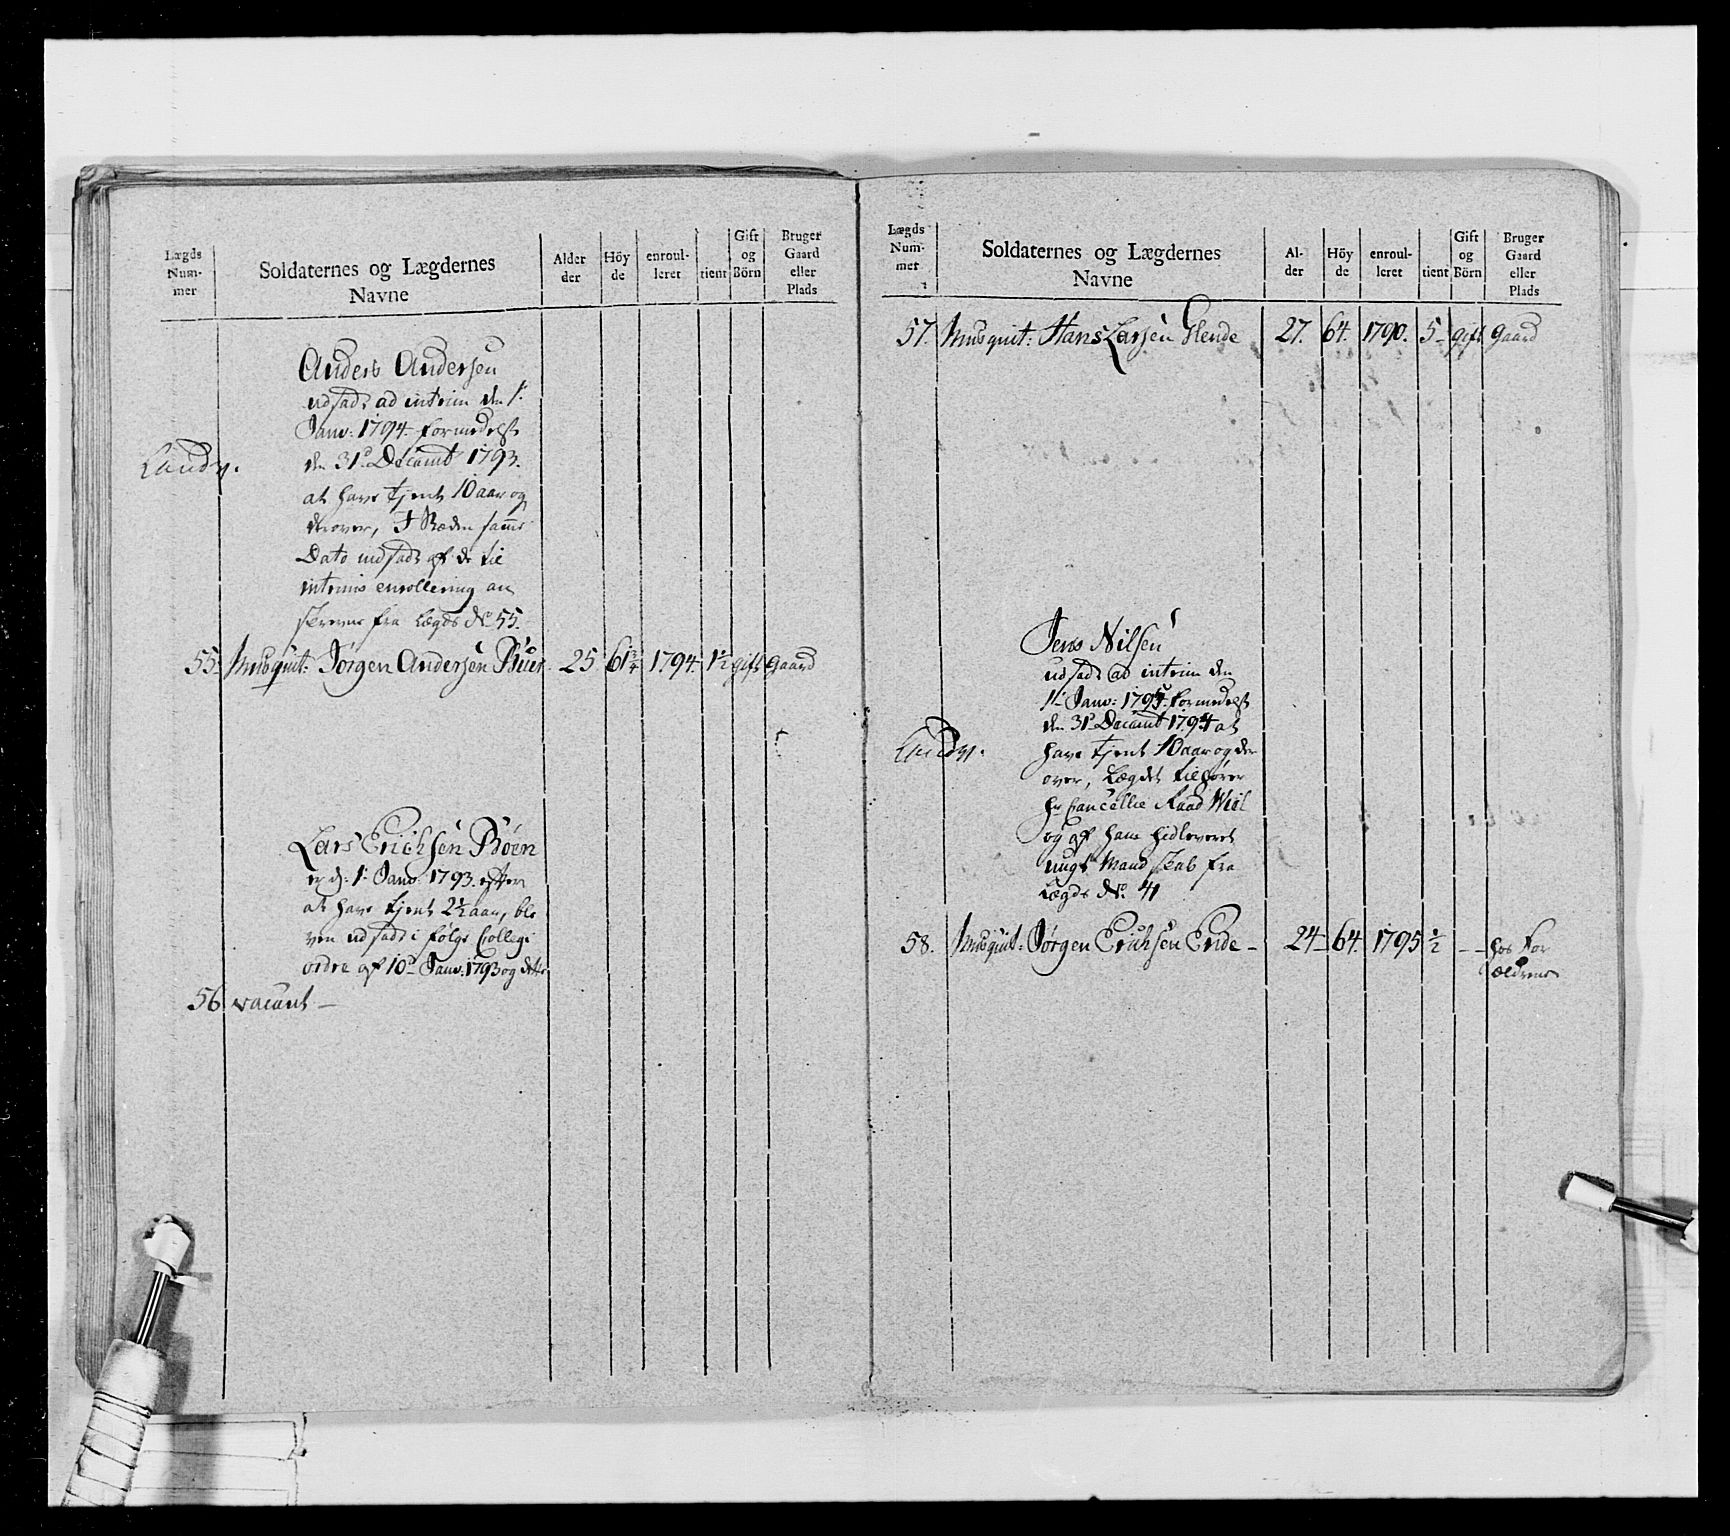 Lægds
Num-
mer
Soldaternes og Lægdernes
Navne
Alder
der
Höy
de
enroul-
leret
tient
Gift
og
Börn
Bruger
Gaard
eller
Plads
Anders Andersen
udsadt ad interim den 1:
Janv: 1794. formedelst
Landv.
den 31te Decembr 1793.
at have tjent 10 aar og
derover, I Ræden samme
Dato indsadt af de til
interims enrollering an
skrevne fra Lægds No 55.
55. Musquit: Jørgen Andersen Buer 25 61 3/4 1794. 1 1/2 gift gaard
Lars Erichsen Böen
er d: 1: Janv: 1793. efter
at have tjent 2 1/2 aar, ble
ven udsadt i følge Collegi
ordre af 10de Janv: 1793 og dette
56 vacant —
Lægds
Num-
mer
Soldaternes og Lægdernes
Navne
Al-
der
Höy
de
enroul-
leret
tient
Gift
og
Börn
Bruger
Gaard
eller
Plads
57. Musquit: Hans Larsen Glende 27. 64. 1790. 5 gift gaard
Jens Nilsen
udsadt ad interim den
1te Janv: 1795. formedelst
den 31te Decembr 1794 at
Landv.
have tjent 10 aar og der
over, Lægdet tilhører
Hr Cancellie Raad Wiel
og af ham hidleveret
ungt Mandskab fra
Lægds No. 41
58. Musquit: Jørgen Erichsen Ende — 24 64 1795 1/2 — hos For
ældrene